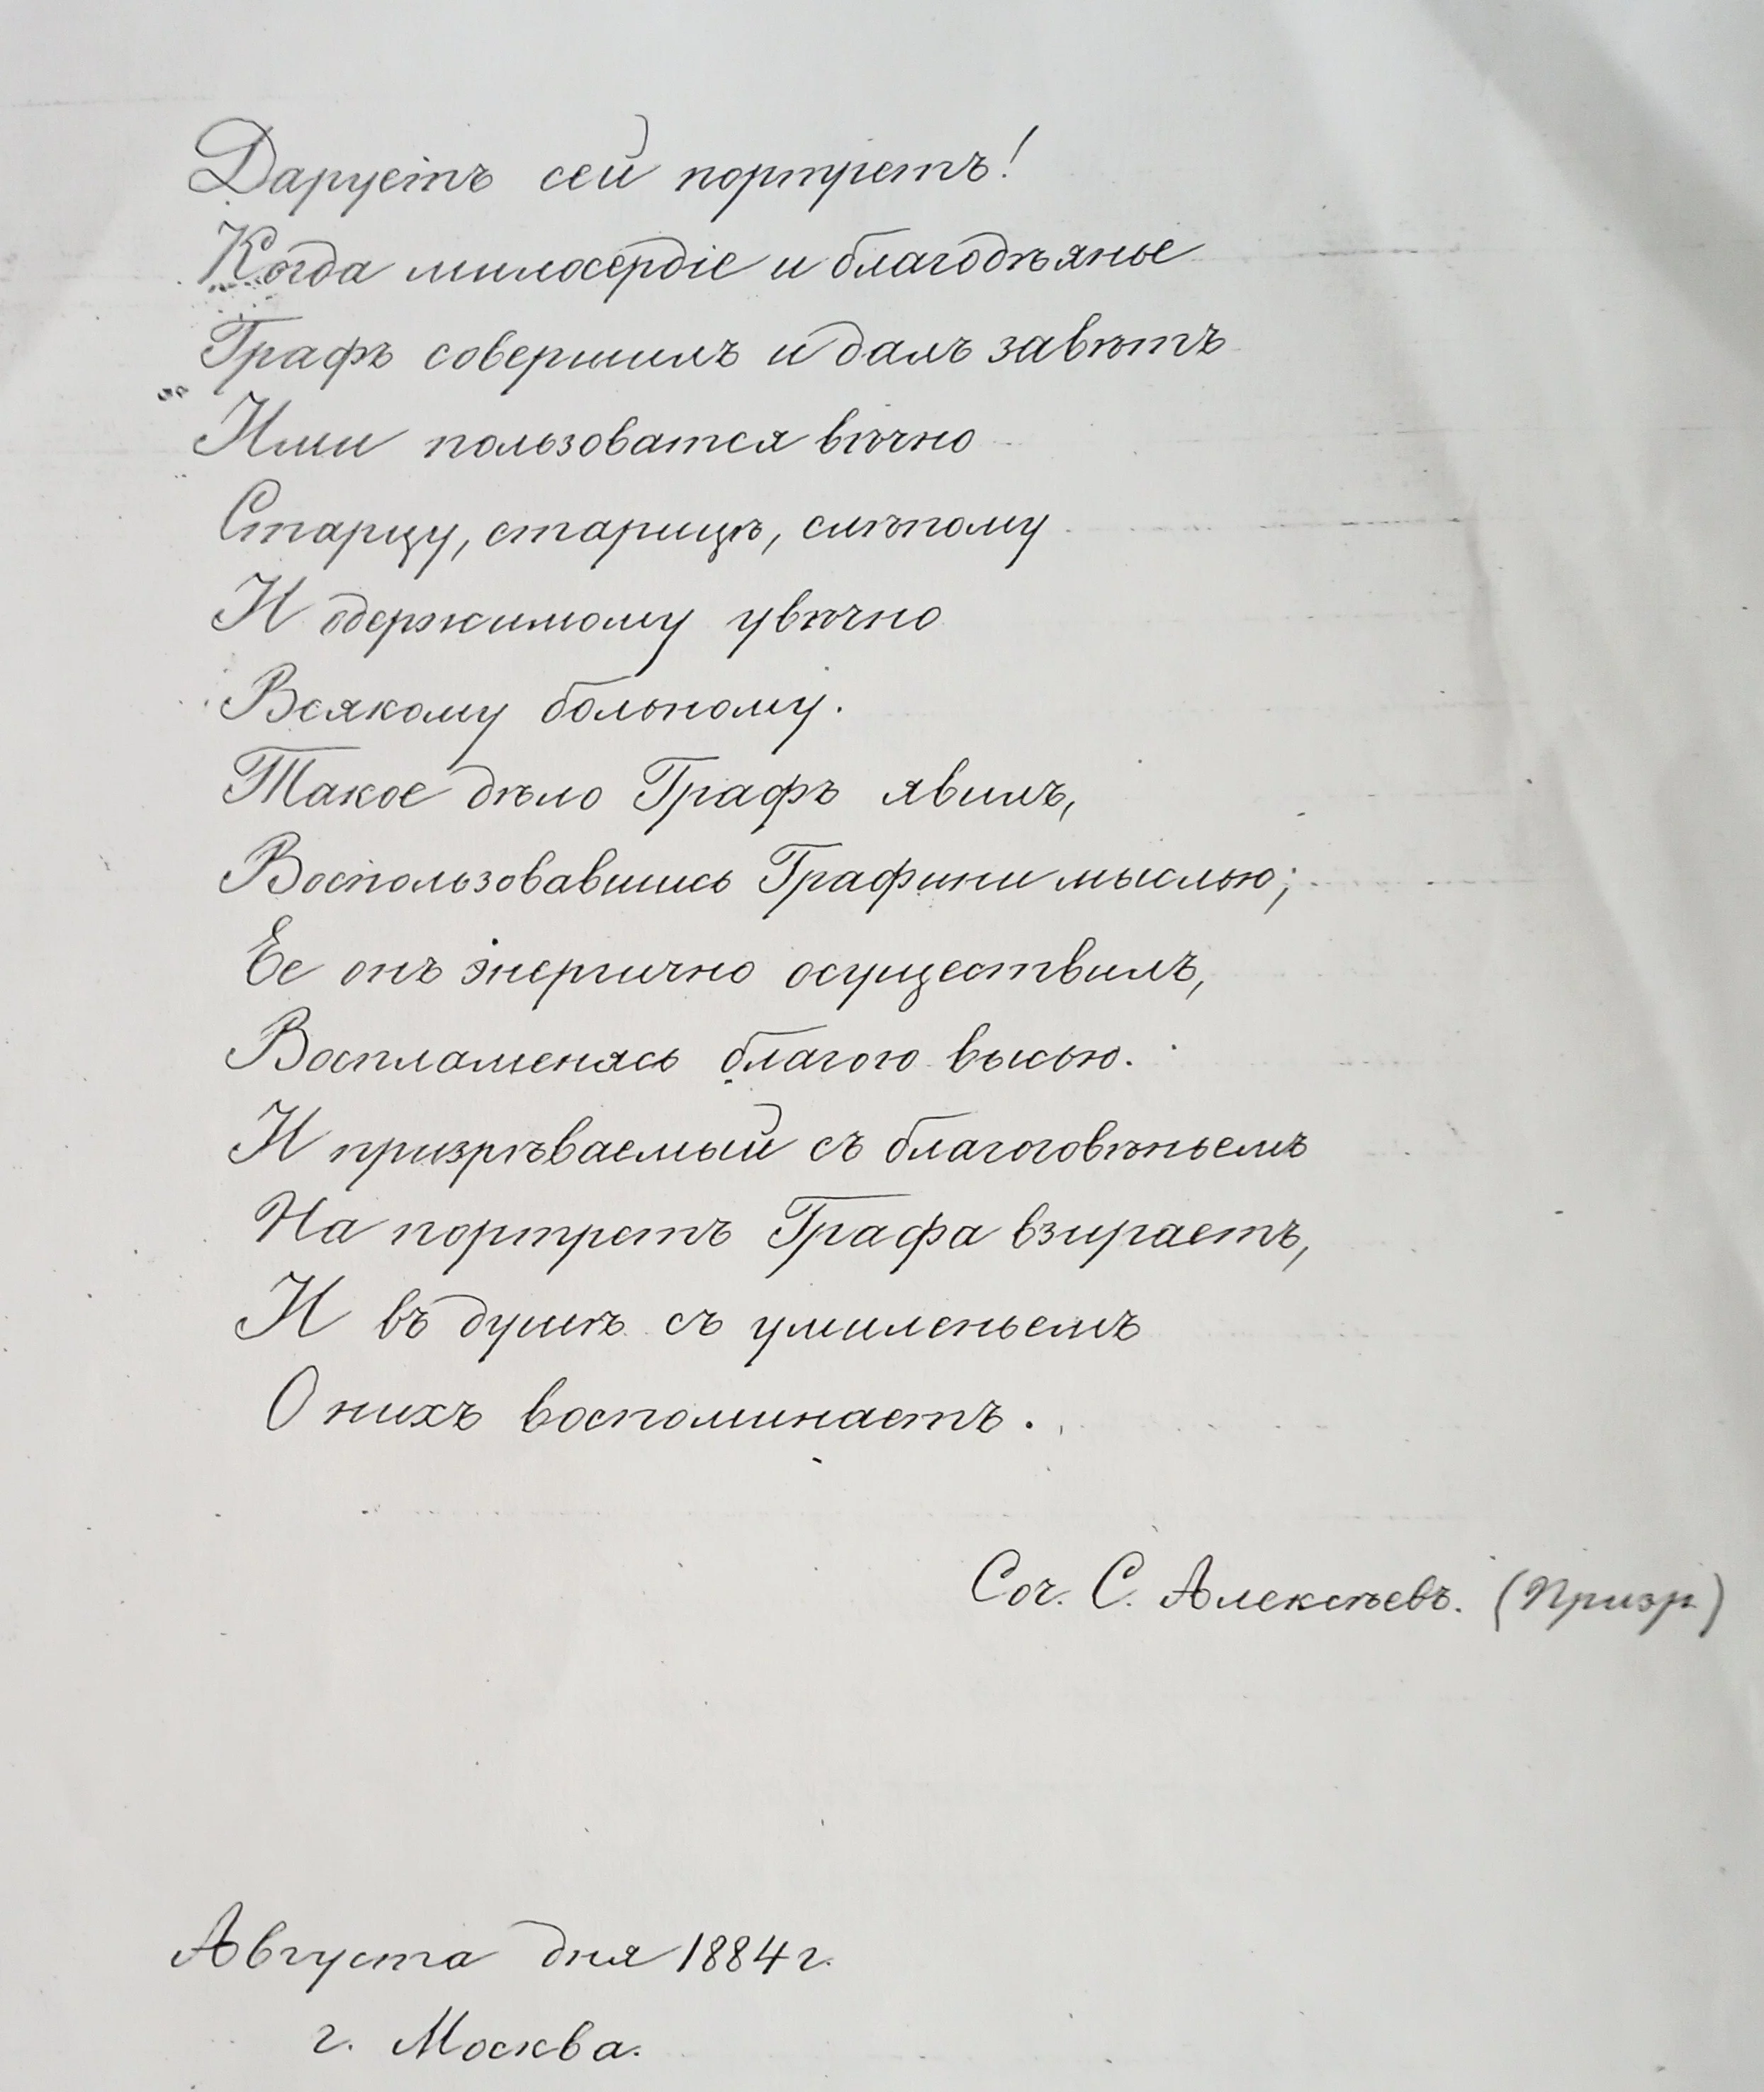 Даруетъ сей портретъ!
Когда милосердіе и благодѣянье
Графъ совершилъ и далъ завѣтъ
Ими пользоватся вѣчно
Старцу, старицѣ, слѣпому
И одержимому увѣчно
Всякому больному.
Такое дѣло Графъ явилъ,
Воспользовавшись Графини мыслью;
Ее онъ энергично осуществилъ,
Воспламенясь благою высью.
И призрѣваемый съ благоговѣньемъ
На портретъ Графа взираетъ,
И въ душѣ съ умиленьемъ
О нихъ воспоминаетъ.
Соч. С. Алексѣевъ. (Призр)
Августа дня 1884 г.
г. Москва.